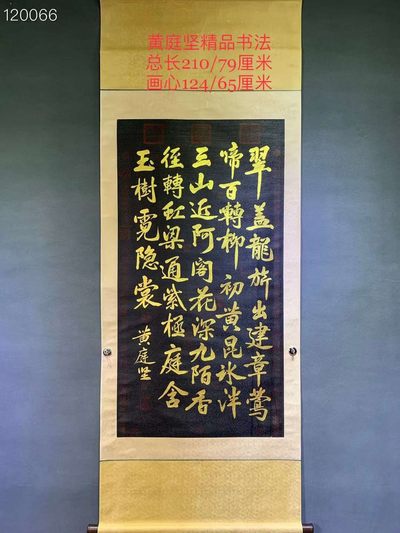 120066
黄庭坚精品书法
总长210/79厘米
画心124/65厘米
翠盖龍旂出建章鶯
啼百轉柳初黄昆氷泮
三山近阿阁花深九陌香
径轉虹梁通紫極庭含
玉樹霓隐裳
黄庭坚